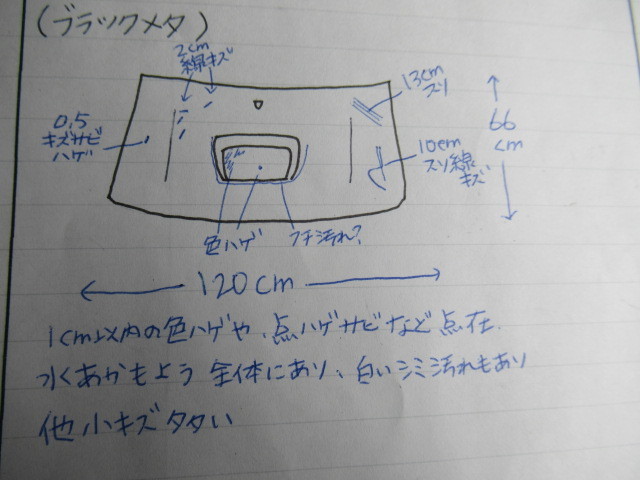 (ブラックメタ)
2cm
線キズ
13cm
スリ
0.5
キズサビ
ハゲ
66
cm
10cm
スリ線
キズ
色ハゲ
フチ汚れ?
120cm
1cm以内の色ハゲや、点ハゲサビなど点在.
水くあかもよう 全体にあり、白いシミ汚れもあり
他 小キズ多い